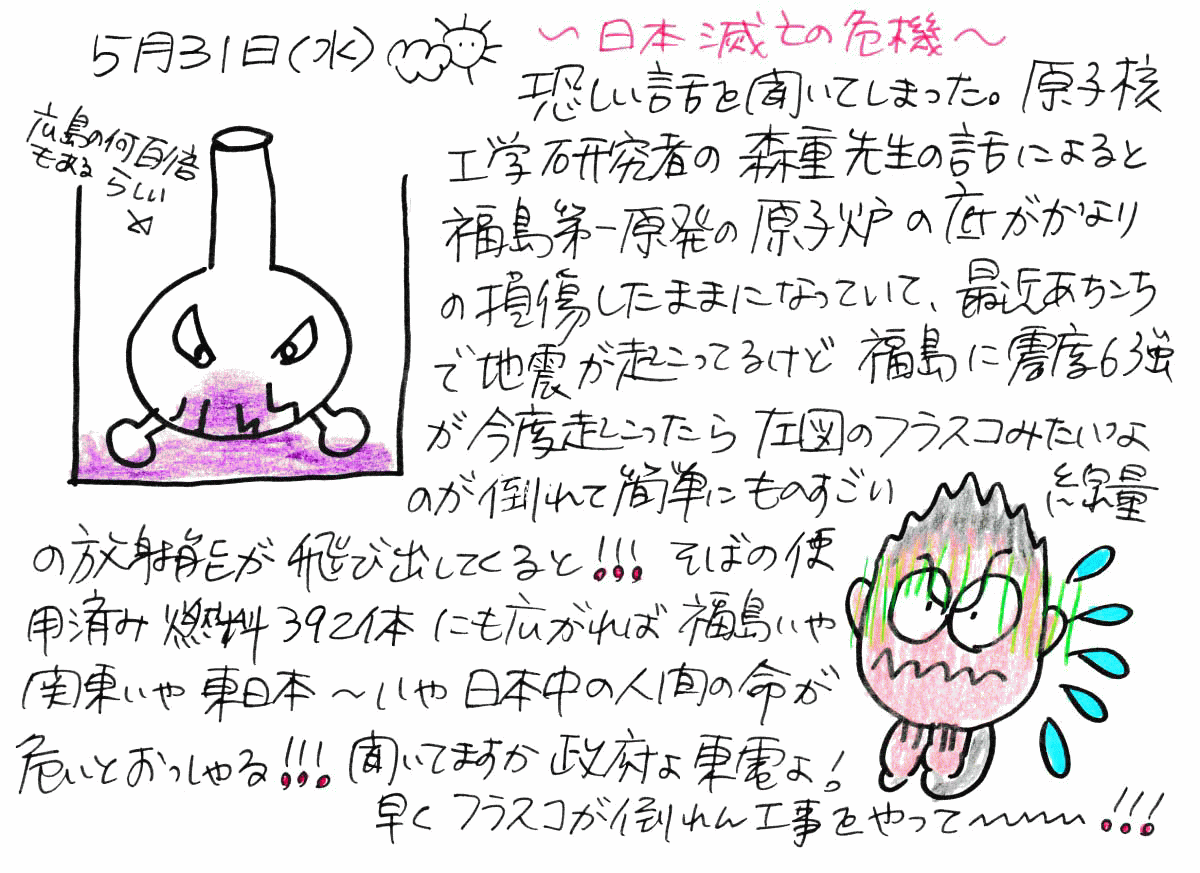 5月31日(水)
〜日本滅亡の危機〜
広島の何百倍
もある
らしい
恐しい話を聞いてしまった。原子核
工学研究者の森重先生の話によると
福島第一原発の原子炉の底がかなり
の損傷したままになっていて、最近あちこち
で地震が起こってるけど福島に震度6強
が今度起こったら左図のフラスコみたいな
のが倒れて簡単にものすごい線量
の放射能が飛び出してくると!!!そばの使
用済み燃料392体にも広がれば福島いや
関東いや東日本〜いや日本中の人間の命が
危いとおっしゃる!!!聞いてますか政府よ東電よ!
早くフラスコが倒れん工事をやって〜〜〜!!!